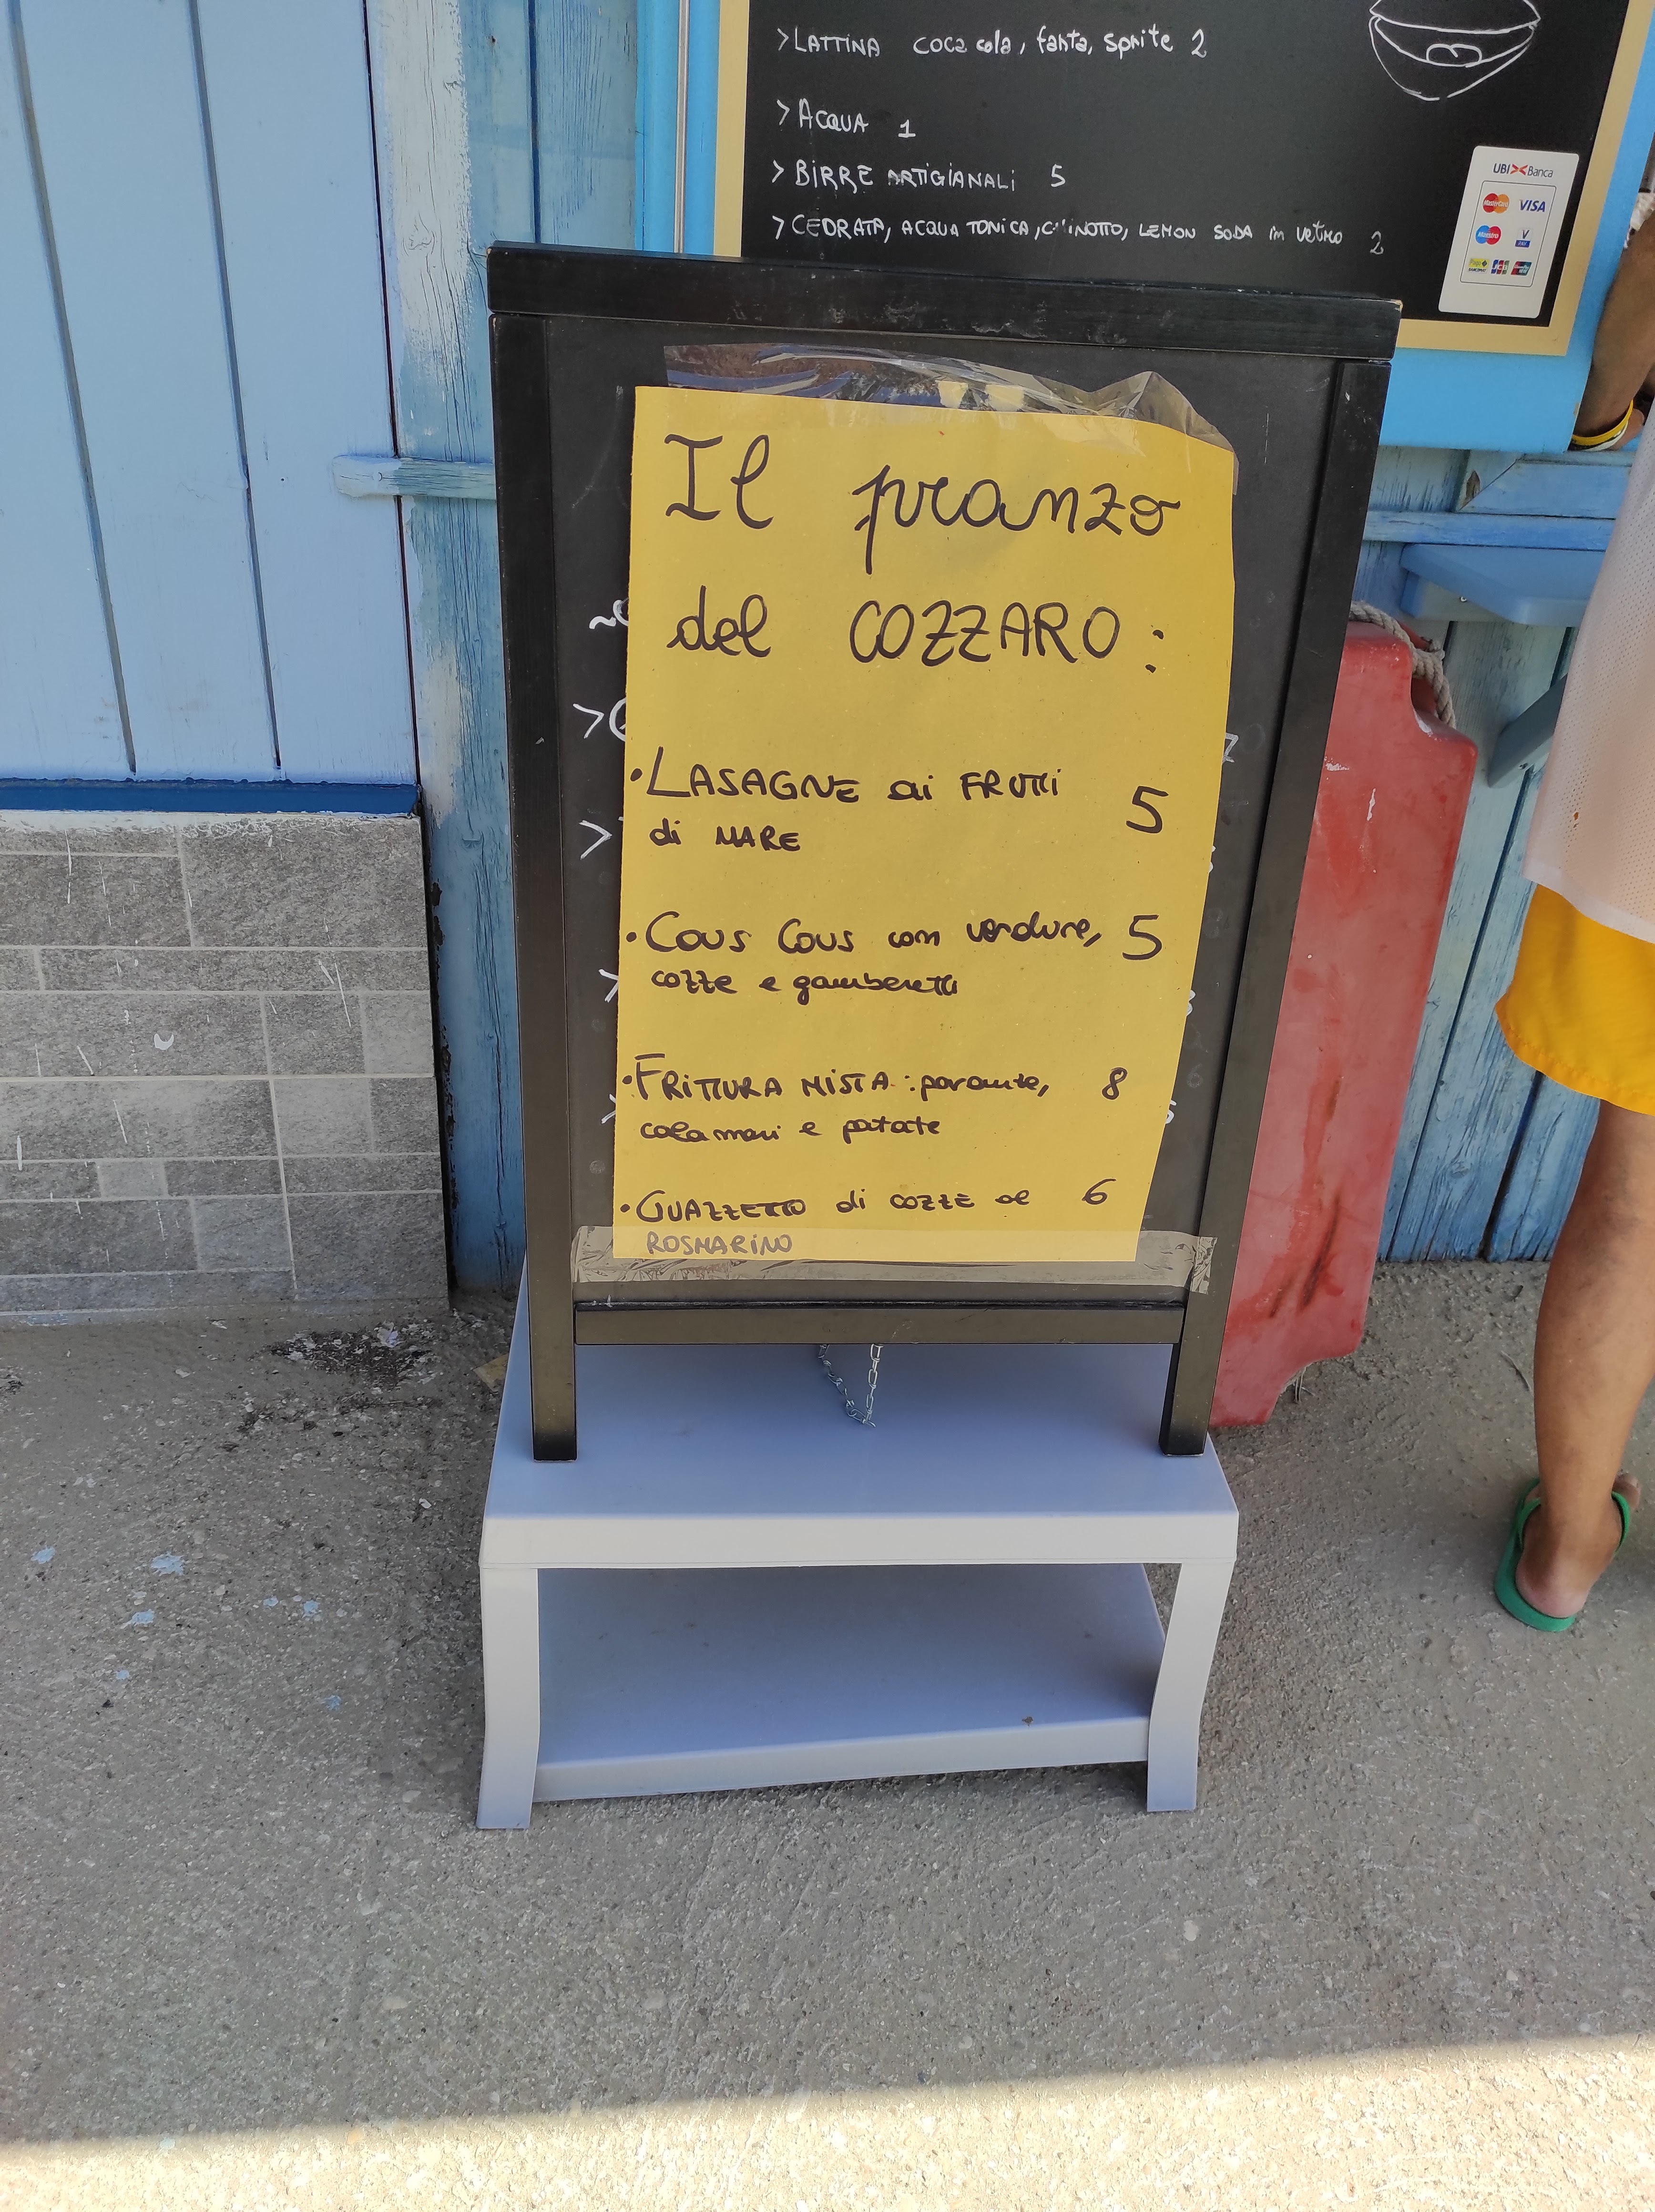 >LATTINA coca cola, fanta, sprite 2
>ACQUA 1
>BIRRE ARTIGIANALI 5
>CEDRATA, ACQUA TONICA, CHINOTTO, LEMON SODA in vetro 2
UBI Banca
MasterCard VISA
Maestro V PAY
Il pranzo
del COZZARO:
•LASAGNE ai FRUTTI 5
di MARE
•Cous Cous con verdure, 5
cozze e gamberetti
•FRITTURA MISTA: paranza, 8
calamari e patate
•GUAZZETTO di cozze al 6
ROSMARINO